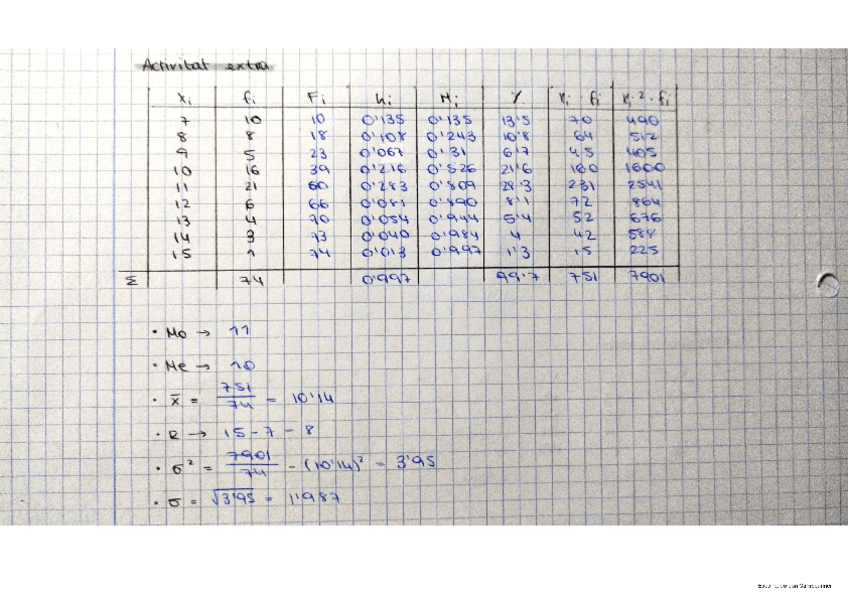 Activitat extra
xi fi Fi hi Hi % xi · fi xi² · fi
7 10 10 0'135 0'135 13'5 70 490
8 8 18 0'108 0'243 10'8 64 512
9 5 23 0'067 0'31 6'7 45 405
10 16 39 0'216 0'526 21'6 160 1600
11 21 60 0'283 0'809 28'3 231 2541
12 6 66 0'081 0'890 8'1 72 864
13 4 70 0'054 0'944 5'4 52 676
14 3 73 0'040 0'984 4 42 588
15 1 74 0'013 0'997 1'3 15 225
Σ 74 0'997 99'7 751 7901
· Mo → 11
· Me → 10
· x̄ = 751/74 = 10'14
· R → 15 - 7 = 8
· σ² = 7901/74 - (10'14)² = 3'95
· σ = √3'95 = 1'987